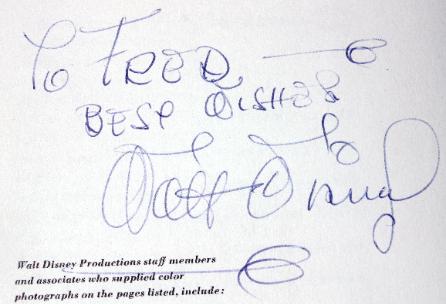 To FRED
BEST WISHES
Walt Disney
Walt Disney Productions staff members
and associates who supplied color
photographs on the pages listed, include: